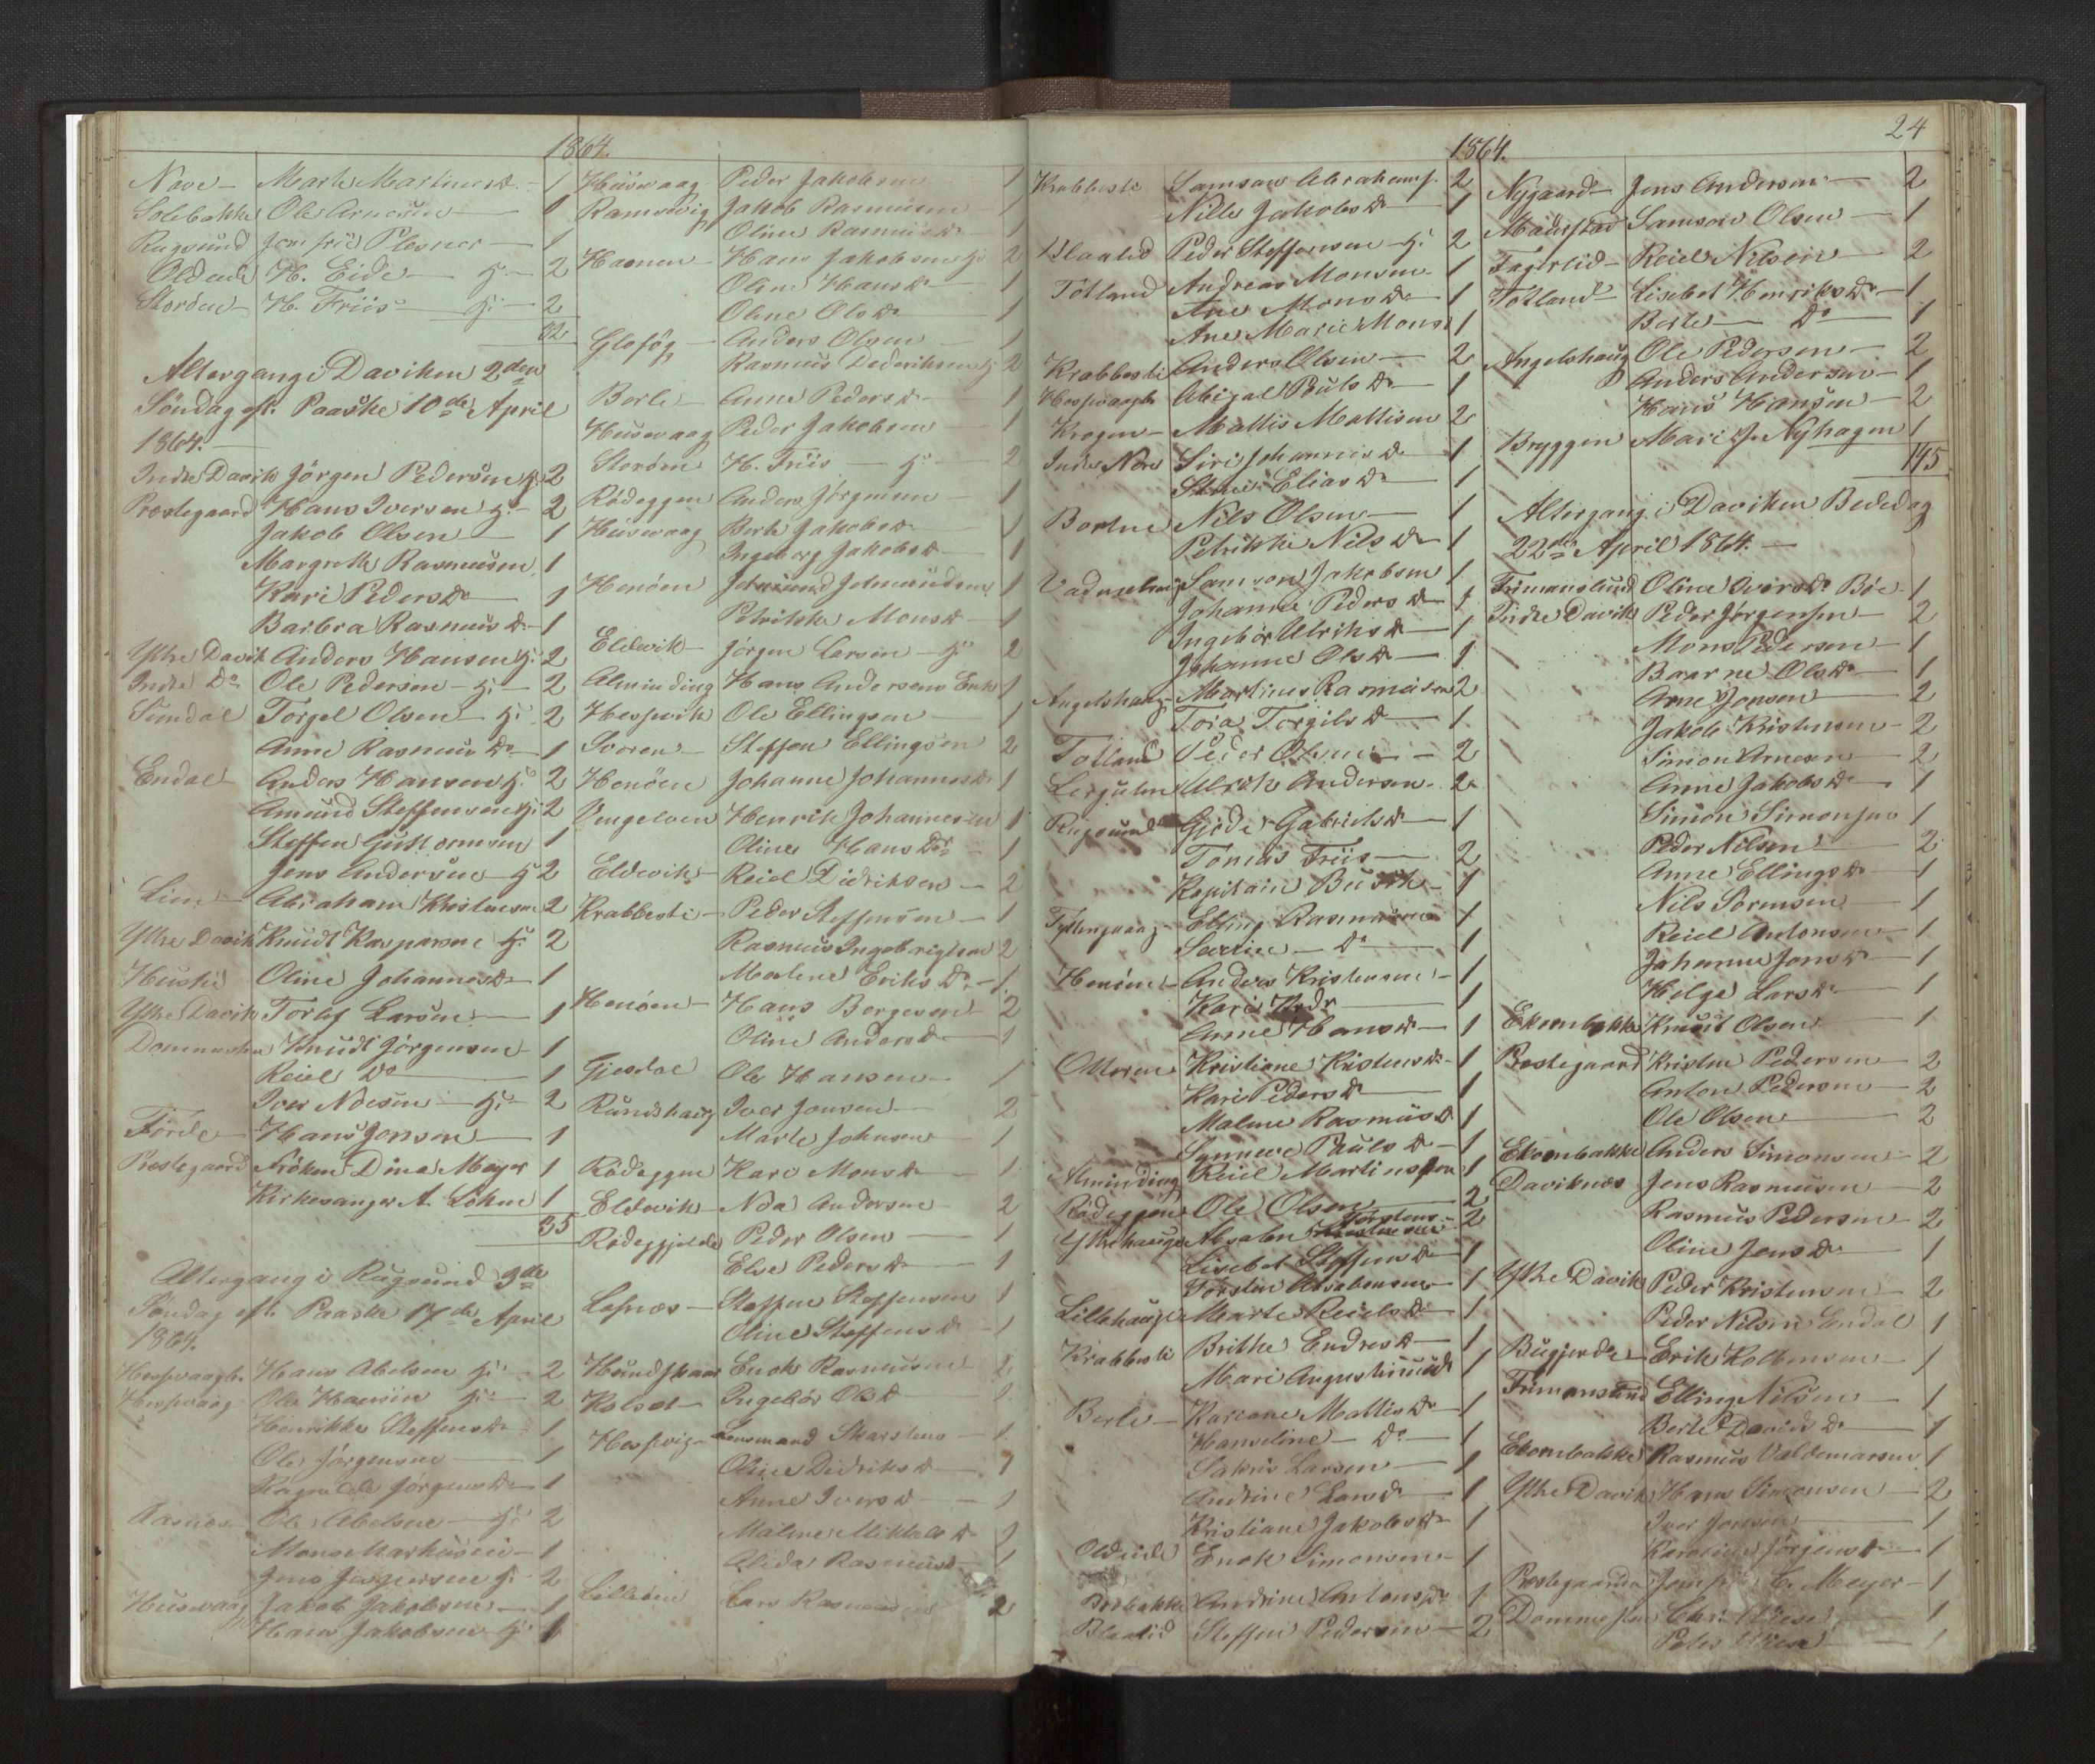 1864.
Nave - Marte Martinusd. - 1
Solebakke Ole Arnesen - 1
Rugsund Jomfrü Plesner - 1
Oldeide H. Eide - H: - 2
Storöen - H. Friis - H: - 2
82
Altergang i Daviken 2den
Söndag eft. Paaske 10de April
1864. -
Indre Davik Jörgen Pedersen H: 2
Præstegaard Hans Iversen H: - 2
Jakob Olsen - 1
Margrethe Rasmusen 1
Kari Pedersdr 1
Barbra Rasmusdr - 1
Ytre Davik Anders Hansen H: 2
Indre Do Ole Pedersen - H: - 2
Sundal Torgel Olsen - H: 2
Anne Rasmusdr - 1
Endal Anders Hansen H: 2
Amund Steffensen H: 2
Steffen Guttormsen 1
Jens Andersen - H: 2
Lien - Abraham Kristensen 2
Ytre Davik Knudt Kaspersen H: 2
Hestni Oline Johannesdr 1
Ytre Davik Torlef Larsen - 1
Dommesten Knudt Jörgensen - 1
Reiel Do - 1
Iver Noesen - H: - 2
Förde - Hans Jonsen - 1
Præstegaard Fröken Dina Meyer 1
Kirkesanger A. Löken 1
35
Altergang i Rugsund 3de
Söndag eft. Paaske 17de April
1864.
Hespvaagbr. Hans Abelsen H: - 2
Hespvaag Ole Hansen H: - 2
Henrikke Steffensdr 1
Ole Jörgensen - 1
Ragnilde Jörgensdr 1
Aasnes Ole Abelsen - H: 2
Mons Markusen - 1
Jens Jespersen H: 2
Husevaag Jakob Jakobsen - 1
Hans Jakobsen H: 1
Husevaag Peder Jakobsen 1
Ramsvig Jakob Rasmusen 1
Oline Rasmusdr 1
Haanen - Hans Jakobsen H: 2
Oline Hansdr 1
Oline Olsdr 1
Glofög - Anders Olsen - 1
Rasmus Dederiksen H: 2
Berle - Anne Pedersdr - 1
Husevaag Peder Jakobsen - 1
Storöen H. Friis - H: - 2
Rödeggen Anders Jörgensen - 1
Husevaag Berte Jakobsdr 1
Ingeborg Jakobsdr - 1
Henöen Jetmund Jetmundsen 1
Petrikke Monsdr - 1
Eldevik Jörgen Larsen - H: 2
Alminding Hans Andersens Enke 1
Hespevik Ole Ellingsen - 1
Ivoren - Steffen Ellingsen 2
Henöen Johanne Johannesdr 1
Vengelven Henrik Johannessen 1
Oline Hansdr - 1
Eldevik - Reiel Didriksen - 2
Krabbesti - Peder Steffensen - 1
Rasmus Ingebrigtsen 2
Malene Eriksdr - 1.
Henöen - Hans Borgesen 2
Oline Andersdr 1
Gjesdal Ole Hansen - 1
Rundehaug Iver Jonsen 2
Marte Johnsen 1
Rödeggen Kari Monsdr 1
Eldevik - Noa Andersen 2
Rödeggjelde Peder Olsen - 1
Else Pedersdr - 1
Lefnæs - Steffen Steffensen 1
Oline Steffensdr - 1
Hundskaar Enok Rasmusen 2
Kolset - Ingebör Olsdr 1
Hespvig - Lensmand Skarstens - 1
Oline Didriksdr 1
Anne Iversdr - 1
Malene Mikkelsdr 1
Alida Rasmusd. 1
Lilleöen Lars Rasmusen 2
24
1864.
Krabbesti Samson Abrahams. 2
Nille Jakobsdr 1
Blaalid Peder Steffensen - H: 2
Totland Andreas Monsen 1
Ane Monsdr 1
Ane Marie Mons 1
Krabbesti Anders Olsen - 2
Hespvaagbr Abigael Paulsdr 1
Krogen - Mattis Mattisen 2
Indre Nore Siri Johannisdr 1
Stine Eliasdr 1
Bortne Nils Olsen - 1
Petrikke Nilsdr 1
Samson Jakobsen 1
Johanne Pedersdr 1
Ingebör Ulriksdr - 1
Johanne Olsdr - 1
Angelshaug Martinus Rasmusen 2
Tora Torgilsdr - 1
Totland Peder Olsen - 2
Lerjulen Ulrik Andersen - 2
Rugsund Gjöde Gabrielsdr - 1
Tomas Friis - 2
Kapitain Busck - 1
Tyttingvaag - Elling Rasmusen 1
Særine - Do 1
Henöen - Anders Kristensen - 1
Kari 1
Anne Hansdr - 1
Otteren Kristiane Kristensdr - 1
Kari Pedersdr - 1
Malene Rasmusdr 1
Synneve Paulsdr - 1
Alminding Reiel Martinussen 1
Rödeggen Ole Olsen 2
Ytrehauge Absalon Törstens - 2
Lisebet Steffensdr 1
Torsten Absalonsen - 1
Lillehauge Marte Reielsdr - 1
Krabbesti Brithe Endresdr 1
Mari Augustinusdr 1
Berle - Kariane Mattisdr - 1
Hanseline - Do - 1
Sakris Larsen - 1
Andrine Larsdr 1
Kristiane Jakobsdr 1
Oldeide Enok Simonsen - 1
Brobakke Andrine Antonsdr 1
Blaalid Steffen Pedersen - 2
Nygaard - Jens Andersen - 2
Maurstad Samson Olsen - 1
Fagerlid - Reiel Nilsen - 2
Totland Lisebet Henriksdr - 1
Berte - Do - 1
Angelshaug Ole Pedersen - 2
Anders Andersen - 1
Hans Hansen - 2
Bryggen Mari J. Nyhagen 1
145
Altergang i Daviken Bededag
22de April 1864. -
Frimanslund Oline Iversdr Böe - 1
Indre Davik Peder Jörgensen - 2
Mons Pedersen - 1
Baarne Olsdr 1
Arne Jonsen 2
Jakob Kristensen - 2
Simon Arnesen - 2
Anne Jakobsdr 1
Simon Simonsen 1
Peder Nilsen - 2
Anne Ellingsdr - 1
Nils Sörensen - 1
Reiel Antonsen - 1
Johanne Jonsdr - 1
Hilge Larsdr - 1
Ekornbakke Knudt Olsen - 1
Præstegaard Kristen Pedersen - 2
Anton Pedersen - 2
Ole Olsen - 2
Ekornbakke Anders Simonsen - 2
Daviknæs Jens Rasmusen - 2
Rasmus Pedersen - 2
Oline Jensdr - 1
Ytre Davik Peder Kristensen - 2
Peder Nilsen Endal 1
Bugjerde - Erik Kolbensen - 1
Frimanslund Elling Nilsen - 1
Berte Davidsdr - 1
Ekornbakke Rasmus Valdemarsen 1
Ytre Davik Hans Simonsen - 2
Iver Jonsen 1
Karoline Jörgensdr - 1
Præstegaarden Jomfru C. Meyer - 1
Dommesten Chr. Wiese - 1
Peter Wiese - 1